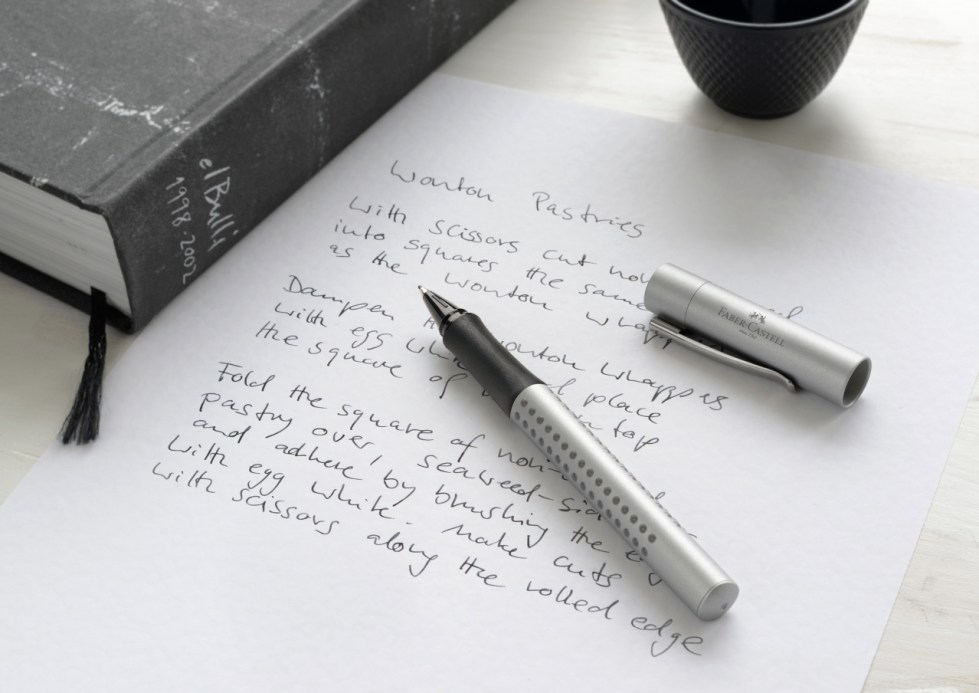 el Bulli
1998-2002
Wonton Pastries
With scissors cut
into squares the same
as the wonton
Dampen wonton wrappers
with egg place
the square of top
Fold the square of
pastry over, seaweed-
and adhere by brushing the
with egg white. Make cuts
with scissors along the rolled edge
FABER-CASTELL